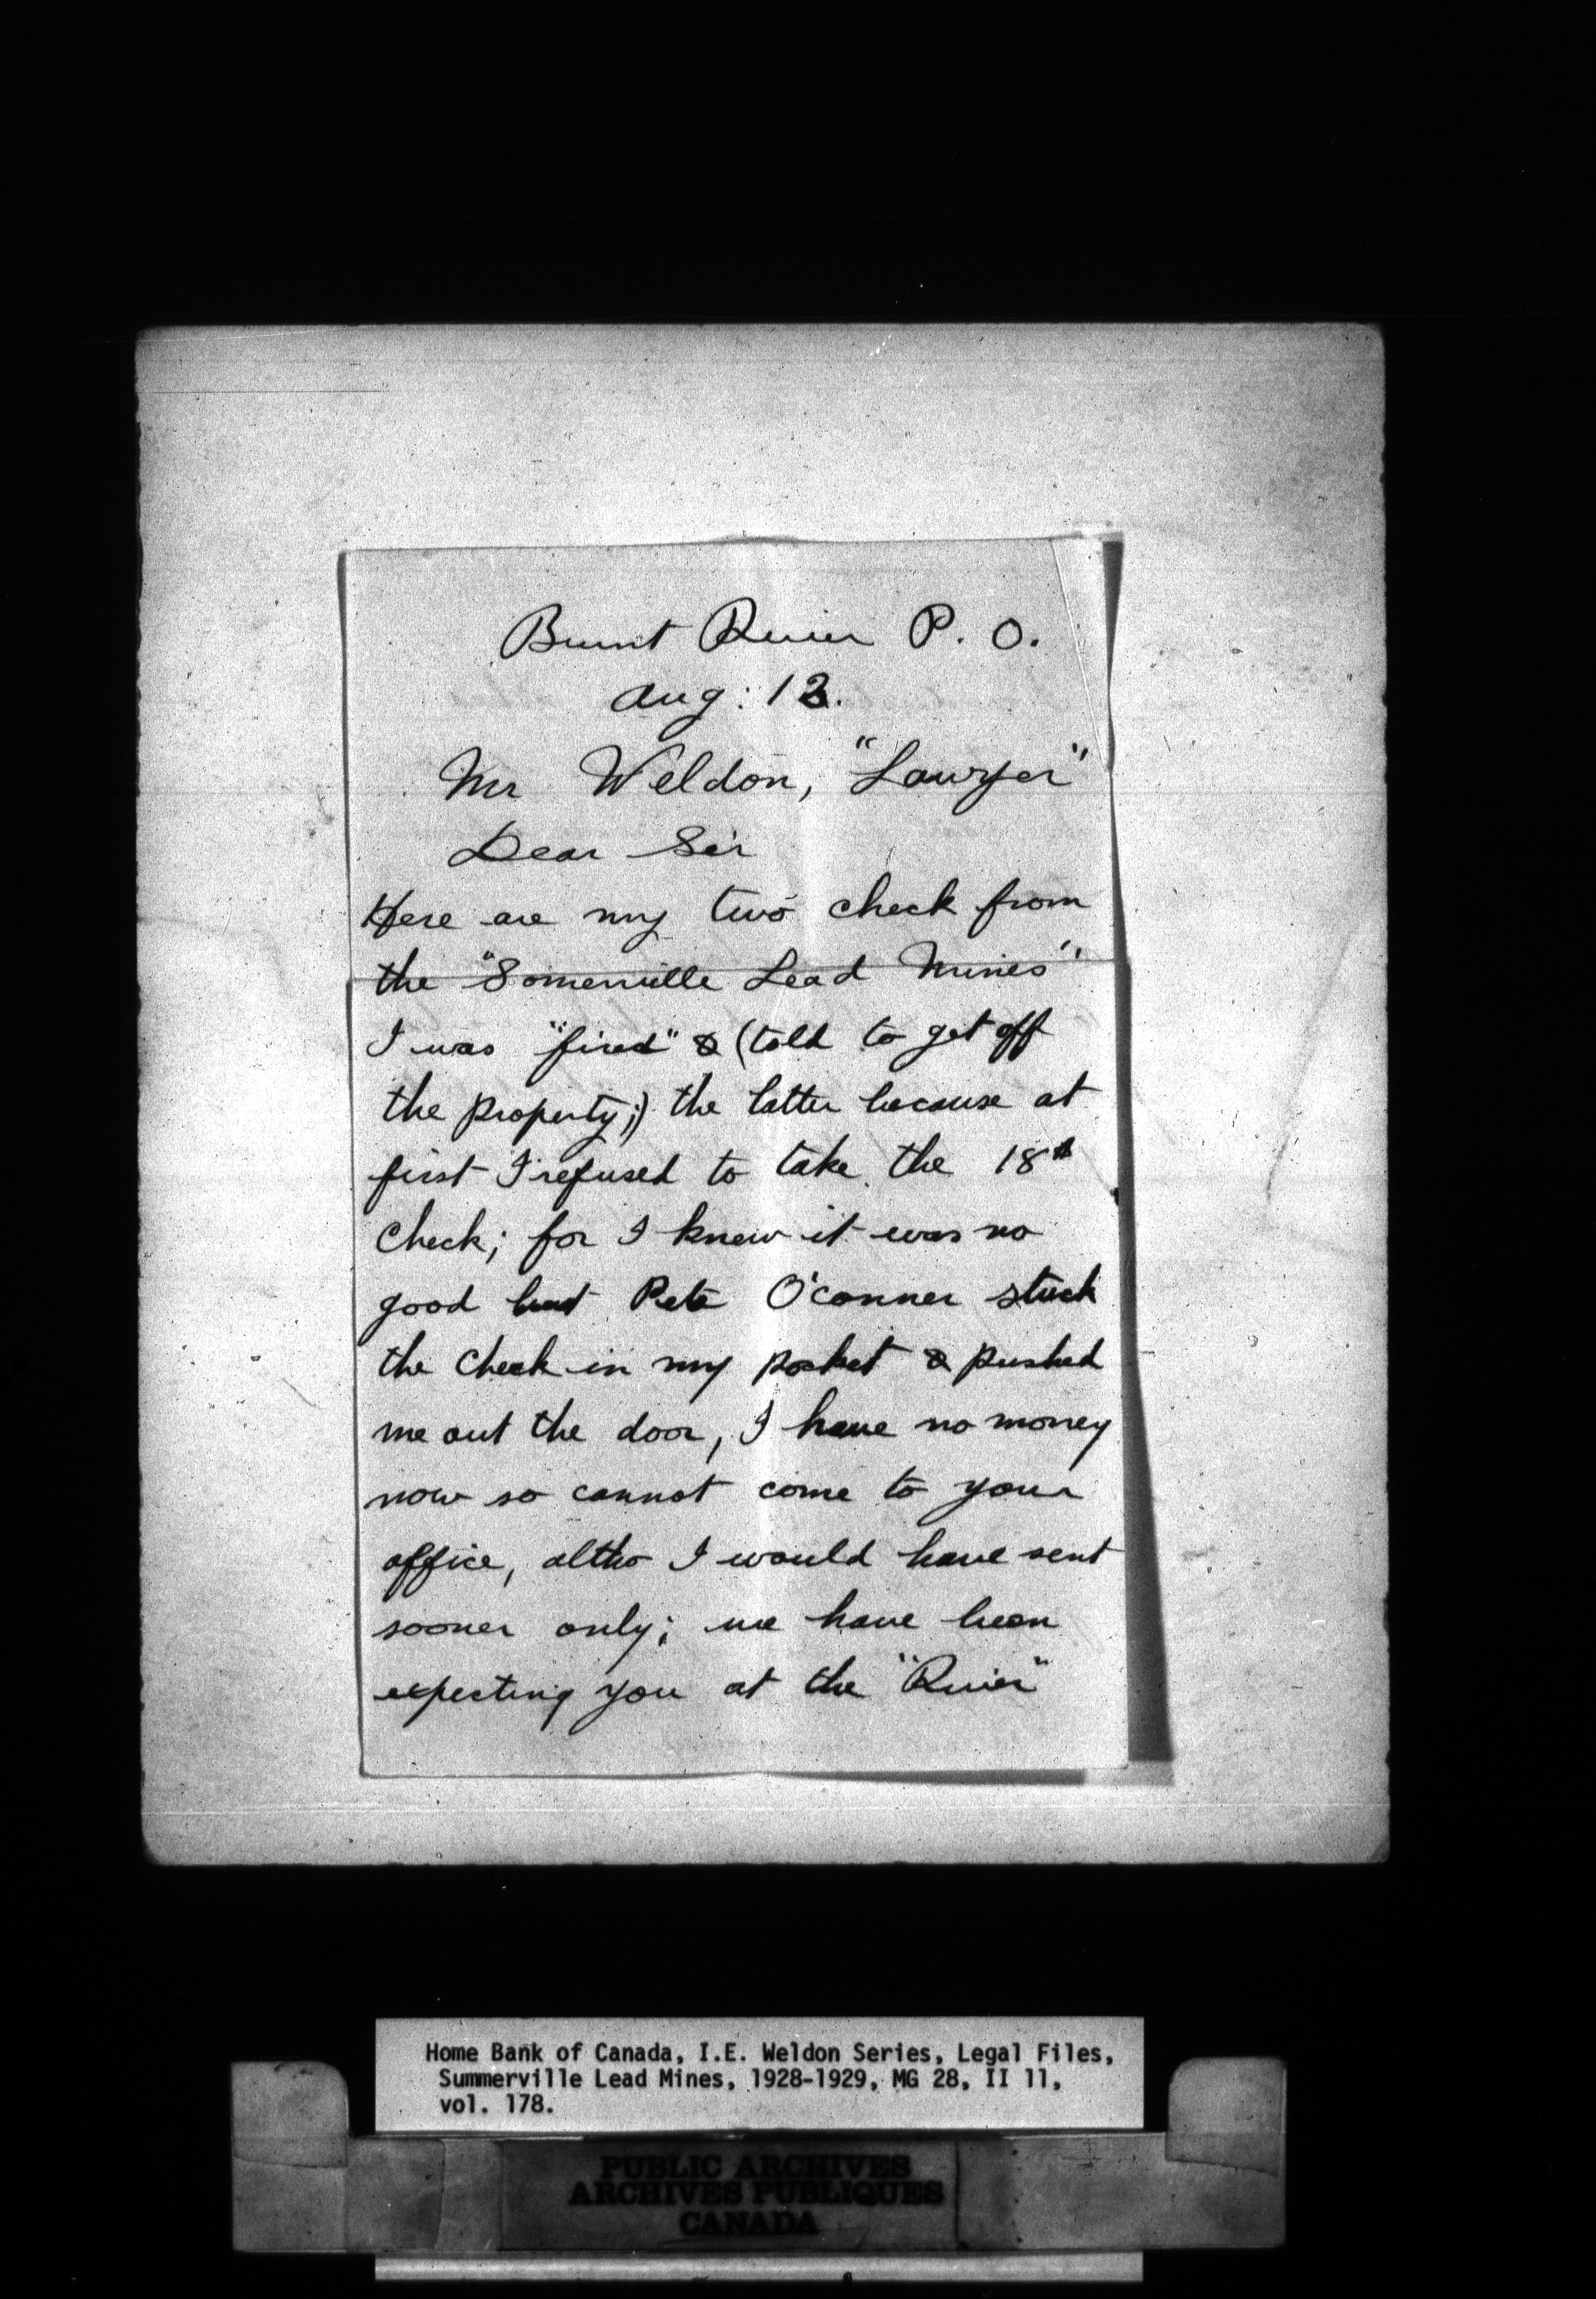 Burnt River P. O.
Aug: 13.
Mr Weldon, "Lawyer"
Dear Sir
Here are my two check from
the "Somerville Lead Mines"
I was "fired" & (told to get off
the property;) the latter because at
first I refused to take the 18th
check; for I knew it was no
good but Pete O'conner stuck
the check in my pocket & pushed
me out the door, I have no money
now so cannot come to your
office, altho I would have sent
sooner only; we have been
expecting you at the "River"
Home Bank of Canada, I.E. Weldon Series, Legal Files,
Summerville Lead Mines, 1928-1929, MG 28, II 11,
vol. 178.
PUBLIC ARCHIVES
ARCHIVES PUBLIQUES
CANADA